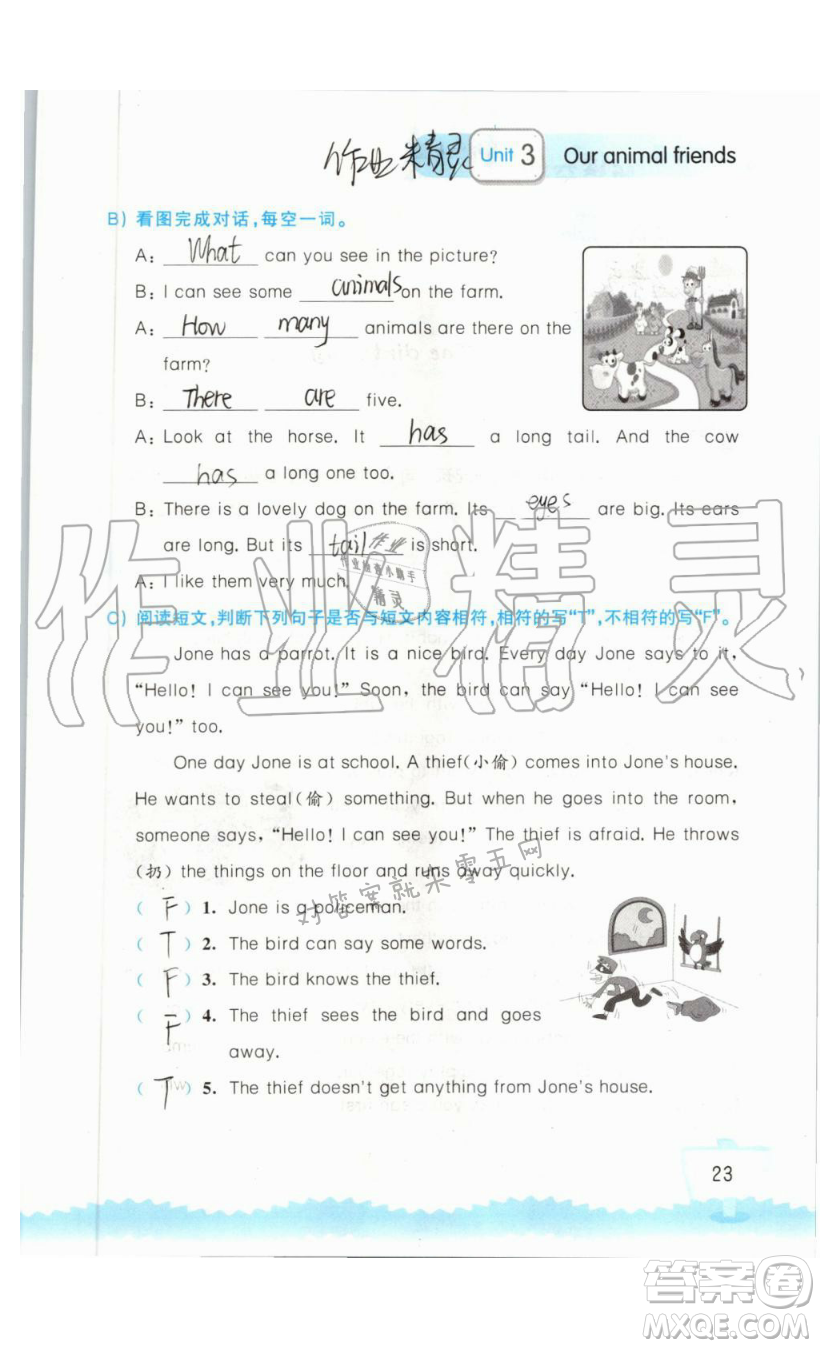 作业精灵 Unit 3 Our animal friends
B) 看图完成对话,每空一词。
A: What can you see in the picture?
B: I can see some animals on the farm.
A: How many animals are there on the
farm?
B: There are five.
A: Look at the horse. It has a long tail. And the cow
has a long one too.
B: There is a lovely dog on the farm. Its eyes are big. Its ears
are long. But its tail is short.
A: I like them very much.
C) 阅读短文,判断下列句子是否与短文内容相符,相符的写“T”,不相符的写“F”。
Jone has a parrot. It is a nice bird. Every day Jone says to it,
“Hello! I can see you!” Soon, the bird can say “Hello! I can see
you!” too.
One day Jone is at school. A thief(小偷) comes into Jone's house.
He wants to steal(偷) something. But when he goes into the room,
someone says, “Hello! I can see you!” The thief is afraid. He throws
(扔) the things on the floor and runs away quickly.
( F ) 1. Jone is a policeman.
( T ) 2. The bird can say some words.
( F ) 3. The bird knows the thief.
( F ) 4. The thief sees the bird and goes
away.
( T ) 5. The thief doesn't get anything from Jone's house.
23
作业精灵
作业
作业检查小助手
精灵
对答案就来零五网
答案圈
MXQE.COM